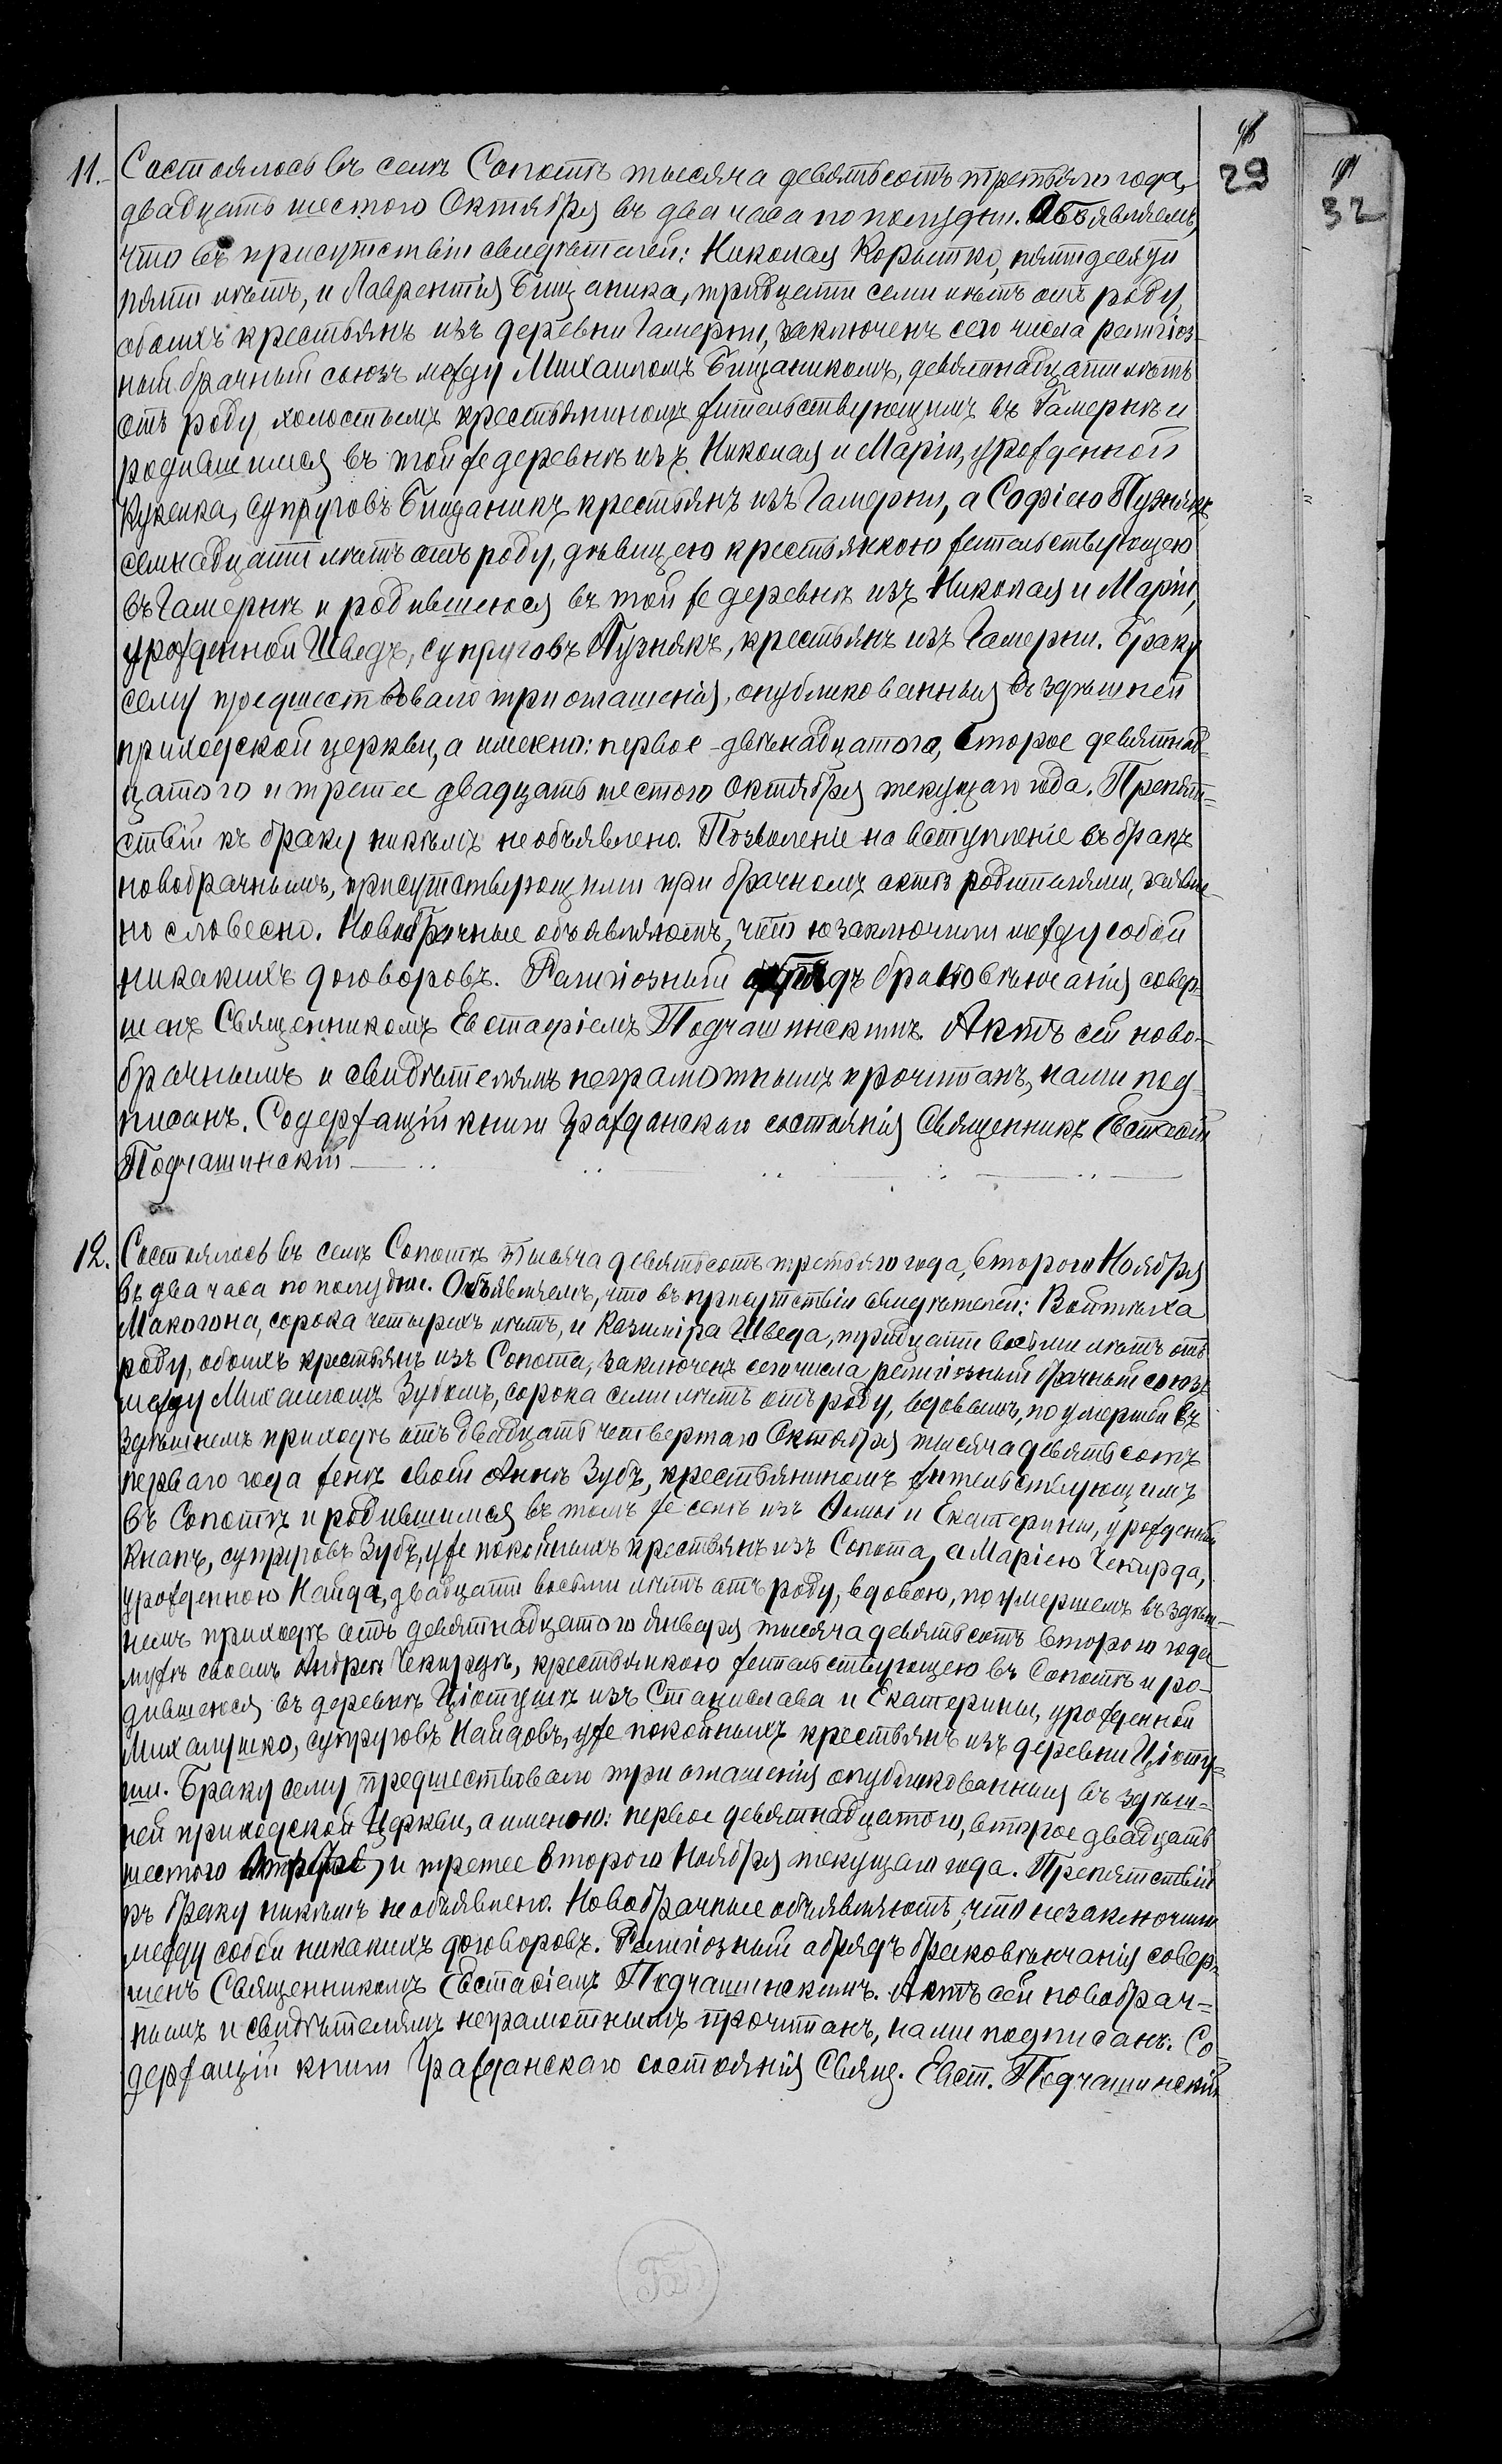 29
32
11. Состоялось въ селѣ Сопотѣ тысяча девятьсотъ третьяго года,
двадцать шестого Октября въ два часа по полудни. Объявляемъ,
что въ присутствіи свидѣтелей: Николая Коростко, пятидесяти
пяти лѣтъ, и Лаврентія Бищаника, тридцати семи лѣтъ отъ роду,
обоихъ крестьянъ изъ деревни Гамерни, заключенъ сего числа религіоз-
ный брачный союзъ между Михаиломъ Бищаникомъ, девятнадцати лѣтъ
отъ роду, холостымъ крестьяниномъ жительствующимъ въ Гамернѣ и
родившимся въ той же деревнѣ изъ Николая и Маріи, урожденной
Кукелка, супруговъ Бищаникъ крестьянъ изъ Гамерни, а Софіею Пузнякъ
семнадцати лѣтъ отъ роду, дѣвицею крестьянкою жительствующею
въ Гамернѣ и родившеюся въ той же деревнѣ изъ Николая и Маріи,
урожденной Шведъ, супруговъ Пузнякъ, крестьянъ изъ Гамерни. Браку
сему предшествовало три оглашенія, опубликованныя въ здѣшней
приходской церкви, а именно: первое - двѣнадцатого, второе девятнад-
цатого и третее двадцать шестого Октября текущаго года. Препят=
ствій къ браку никѣмъ не объявлено. Позволеніе на вступленіе въ бракъ
новобрачнымъ, присутствующими при брачномъ актѣ родителями, заявле-
но словесно. Новобрачные объявляютъ, что незаключили между собой
никакихъ договоровъ. Религіозный обрядъ браковѣнчанія совер-
шенъ Священникомъ Евстафіемъ Подчашинскимъ. Актъ сей ново-
брачнымъ и свидѣтелямъ неграмотнымъ прочитанъ, нами под-
писанъ. Содержащій книги Гражданскаго состоянія Священникъ Евстафій
Подчашинскій
12. Состоялось въ селѣ Сопотѣ тысяча девятьсотъ третьяго года, второго Ноября
въ два часа по полудни. Объявляемъ, что въ присутствіи свидѣтелей: Войтѣха
Макогона, сорока четырехъ лѣтъ, и Казиміра Шведа, тридцати восьми лѣтъ отъ
роду, обоихъ крестьянъ изъ Сопота, заключенъ сего числа религіозный брачный союзъ
между Михаиломъ Зубомъ, сорока семи лѣтъ отъ роду, вдовымъ, по умершей въ
здѣшнемъ приходѣ отъ двадцать четвертаго Октября тысяча девятьсотъ
перваго года женѣ своей Аннѣ Зубъ, крестьяниномъ жительствующимъ
въ Сопотѣ и родившимся въ томъ же селѣ изъ Ѳомы и Екатерины, урожденной
Кнапъ, супруговъ Зубъ, уже покойныхъ крестьянъ изъ Сопота, а Маріею Чекирда,
урожденною Найда, двадцати восьми лѣтъ отъ роду, вдовою, по умершемъ въ здѣш-
немъ приходѣ отъ девятнадцатого Января тысяча девятьсотъ второго года
мужѣ своемъ Андреѣ Чекирдѣ, крестьянкою жительствующею въ Сопотѣ и ро-
дившеюся въ деревнѣ Цютушѣ изъ Станислава и Екатерины, урожденной
Михалушко, супруговъ Найдовъ, уже покойныхъ крестьянъ изъ деревни Цюту=
ши. Браку сему предшествовало три оглашенія опубликованныя въ здѣш=
ней приходской Церкви, а именно: первое девятнадцатого, второе двадцать
шестого Октября, и третее второго Ноября текущаго года. Препятствій
къ браку никѣмъ не объявлено. Новобрачные объявляютъ, что незаключили
между собой никакихъ договоровъ. Религіозный обрядъ браковѣнчанія совер-
шенъ Священникомъ Евстафіемъ Подчашинскимъ. Актъ сей новобрач=
нымъ и свидѣтелямъ неграмотнымъ прочитанъ, нами подписанъ. Со-
держащій книги Гражданскаго состоянія Свящ. Евст. Подчашинскій